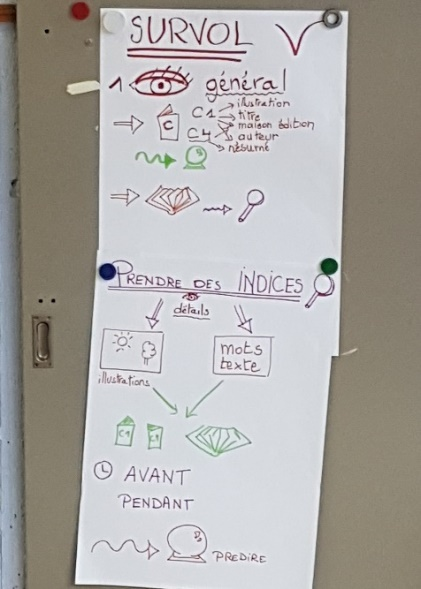 SURVOL V
1 général
C C1 illustration
titre
maison édition
C4 auteur
résumé
PRENDRE DES INDICES
détails
mots
texte
illustrations
AVANT
PENDANT
PREDIRE